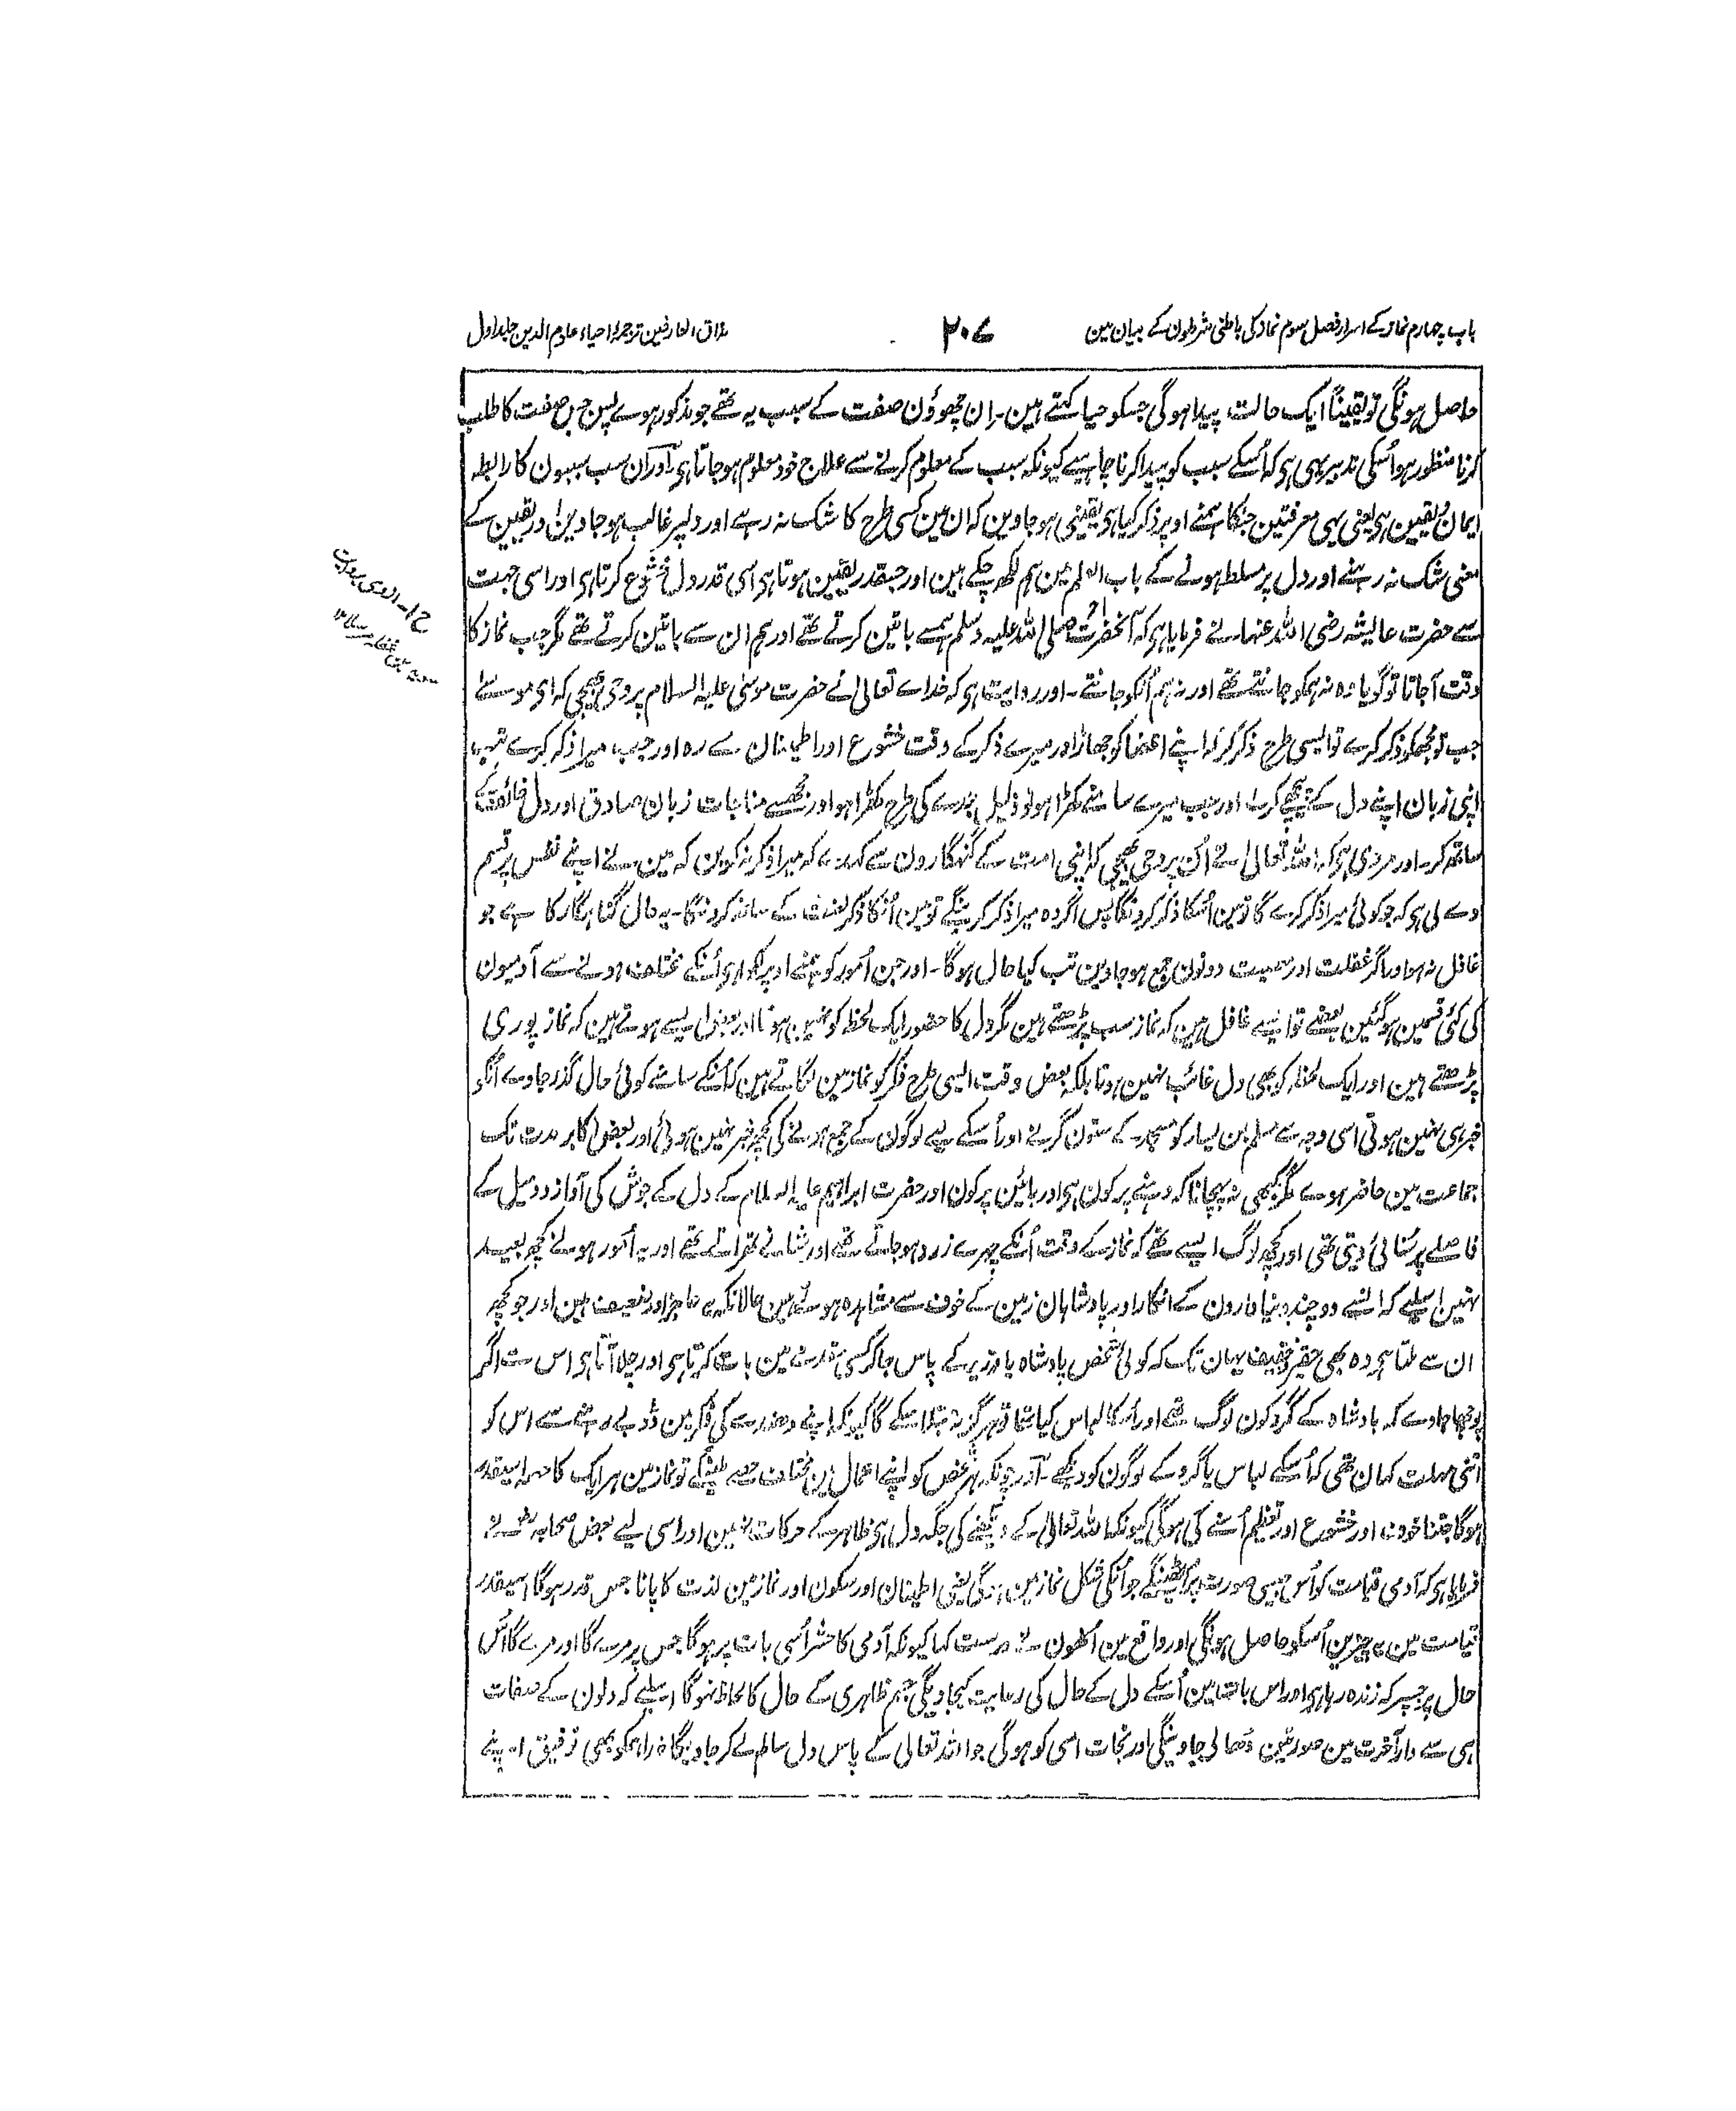 باب چہارم نماز کے اسرار فصل سوم نماز کی باطنی شرطون کے بیان مین
۲۰۷
مذاق العارفین ترجمۂ احیاء علوم الدین جلد اول
حاصل ہونگی تو یقیناً ایک حالت پیدا ہوگی جسکو حیا کہتے ہین۔ ان چھوؤن صفت کے سبب یہ تھے جو مذکور ہوے پس جس صفت کا طلب
کرنا منظور ہو اُسکی تدبیر یہی ہی کہ اُسکے سبب کو پیدا کرنا چاہیے کیونکہ سبب کے معلوم کرنے سے علاج خود معلوم ہو جاتا ہی اور ان سب سببون کا رابطہ
ایمان و یقین ہی یعنی یہی معرفتین جنکا ہمنے اوپر ذکر کیا ہی یقینی ہو جاوین کہ ان مین کسی طرح کا شک نہ رہے اور دلپر غالب ہو جاوین اور یقین کے
معنی شک نہ رہنے اور دل پر مسلط ہونے کے باب العلم مین ہم لکھ چکے ہین اور جسقدر یقین ہوتا ہی اسی قدر دل خشوع کرتا ہی اور اسی جہت
سے حضرت عایشہ رضی اللہ عنہا نے فرمایا ہی کہ آنحضرت صلی اللہ علیہ وسلم ہمسے باتین کرتے تھے اور ہم ان سے باتین کرتے تھے مگر جب نماز کا
وقت آجاتا تو گویا وہ نہ ہمکو جانتے تھے اور نہ ہم اُنکو جانتے۔ اور روایت ہی کہ خداے تعالیٰ نے حضرت موسیٰ علیہ السلام پر وحی بھیجی کہ ای موسے
جب تو مجھکو ذکر کرے تو ایسی طرح ذکر کر کہ اپنے اعضا کو جھاڑ اور میرے ذکر کے وقت خشوع اور اطمینان سے رہ اور جب میرا ذکر کرے تب
اپنی زبان اپنے دل کے پیچھے کر لے اور جب میرے سامنے کھڑا ہو تو ذلیل بندے کی طرح کھڑا ہو اور مجھسے مناجات زبان صادق اور دل خائف کے
ساتھ کر۔ اور مروی ہی کہ اللہ تعالیٰ نے اُن پر وحی بھیجی کہ اپنی امت کے گنہگارون سے کہدے کہ میرا ذکر نہ کرین کہ مین نے اپنے نفس پر قسم
دے لی ہی کہ جو کوئی میرا ذکر کرے گا تو مین اُسکا ذکر کرونگا پس اگر وہ میرا ذکر کرینگے تو مین اُنکا ذکر لعنت کے ساتھ کرونگا۔ یہ حال گناہگار کا ہے جو
غافل نہ ہو اور اگر غفلت اور معصیت دونون جمع ہو جاوین تب کیا حال ہوگا۔ اور جن اُمور کو ہمنے اوپر لکھا ہی اُنکے مختلف ہونے سے آدمیون
کی کئی قسمین ہوگئین بعضے تو ایسے غافل ہین کہ نماز سب پڑھتے ہین مگر دل کا حضور ایک لحظہ کو نہین ہوتا اور بعض ایسے ہوتے ہین کہ نماز پوری
پڑھتے ہین اور ایک لحظہ کو بھی دل غائب نہین ہوتا بلکہ بعض وقت ایسی طرح فکر کو نماز مین لگاتے ہین کہ اُنکے سامنے کوئی حال گذر جاوے اُنکو
خبر ہی نہین ہوتی اسی وجہ سے مسلم بن یسار کو مسجد کے ستون گرنے اور اُسکے لیے لوگون کے جمع ہونے کی کچھ خبر نہین ہوئی اور بعض اکابر مدت تک
جماعت مین حاضر ہوے مگر کبھی نہ پہچانا کہ دہنے پر کون ہی اور بائین پر کون اور حضرت ابراہیم علیہ السلام کے دل کے جوش کی آواز دو میل کے
فاصلے پر سنائی دیتی تھی اور کچھ لوگ ایسے تھے کہ نماز کے وقت اُنکے چہرے زرد ہو جاتے تھے اور شانے تھراتے تھے اور یہ اُمور ہونے کچھ بعید
نہین اسلیے کہ انسے دو چند دنیا دارون کے افکار اور بادشاہان زمین کے خوف سے مشاہدہ ہوتے ہین حالانکہ یہ عاجز اور ضعیف ہین اور جو کچھ
ان سے ملتا ہی وہ بھی حقیر و خفیف یہان تک کہ کوئی شخص بادشاہ یا وزیر کے پاس جاکر کسی مقدمہ مین بات کرتا ہی اور چلا آتا ہی اس سے اگر
پوچھا جاوے کہ بادشاہ کے گرد کون لوگ تھے اور اُسکا لباس کیا تھا تو ہرگز نہ بتلا سکے گا کیونکہ اپنے دھندے کی فکر مین ڈوبے رہنے سے اس کو
اتنی مہلت کہان تھی کہ اُسکے لباس یا گرد کے لوگون کو دیکھے۔ اور چونکہ ہر شخص کو اپنے اعمال مین مختلف حصے ملینگے تو نماز مین ہر ایک کا حصہ اسیقدر
ہوگا جتنا خوف اور خشوع اور تعظیم اُسنے کی ہوگی کیونکہ اللہ تعالیٰ کے دیکھنے کی جگہ دل ہی ظاہر کے حرکات نہین اور اسی لیے بعض صحابہ رض نے
فرمایا ہی کہ آدمی قیامت کو اُس جیسی صورت پر اُٹھینگے جو اُنکی شکل نماز مین ہوگی یعنی اطمینان اور سکون اور نماز مین لذت کا پانا جس قدر ہوگا اسیقدر
قیامت مین یہ چیزین اُسکو حاصل ہونگی اور واقع مین اُنھون نے درست کہا کیونکہ آدمی کا حشر اُسی بات پر ہوگا جس پر مرے گا اور مرے گا اُس
حال پر جسپر کہ زندہ رہا ہی اور اس بات مین اُسکے دل کے حال کی رعایت کیجاویگی جسم ظاہری کے حال کا لحاظ نہوگا اسلیے کہ دلون کے صفات
ہی سے دار آخرت مین صورتین ڈھالی جاوینگی اور نجات اسی کو ہوگی جو اللہ تعالیٰ کے پاس دل سالم لے کر جاویگا خدا ہمکو بھی توفیق اپنے